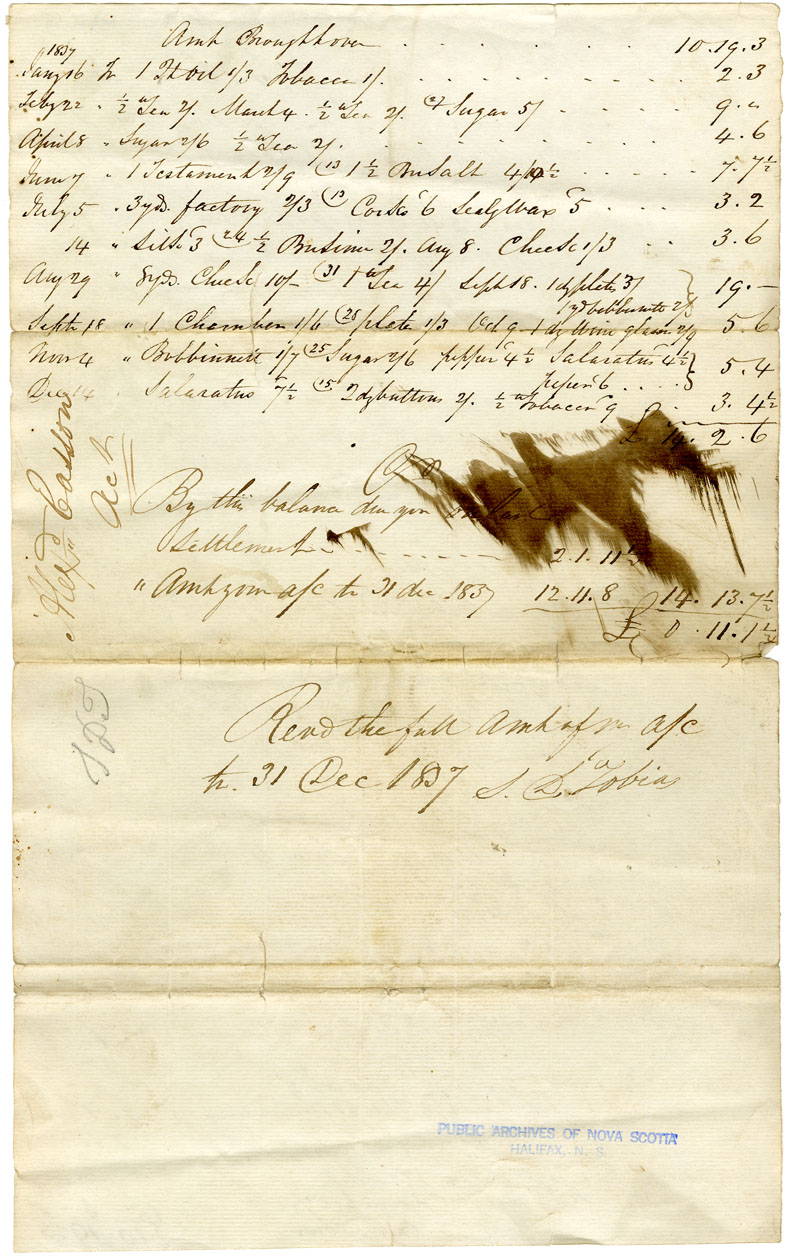 Amt Broughtover . . . . . . 10.19.3
1837
Jany 16 To 1 Pt Oil 1/3 Tobacco 1/. . . . . . . . 2.3
Feby 22 " ½ tt Tea 2/. March 4. ½ tt Tea 2/. (27 Sugar 5/ . . . 9."
April 8 " Sugar 2/6 ½ tt Tea 2/. . . . . . . 4.6
June 7 " 1 Testament 2/9 (13 1½ Bu Salt 4/10½ . . . . . 7.7½
July 5 " 3 yds. factory 2/3 (13 Corks 6 Sealg Wax 5 . . . . 3.2
14 " Silk 3 (24 ½ 2/. Aug 8. Cheese 1/3 . . 3.6
Aug 29 " 8 yds. Check 10/- (31 1 tt Tea 4/ Sept 18. 1 dz plate 3/ } 19.—
1 yd bobbinett 2/
Sept 18 " 1 Chamber 1/6 (26 plate 1/3 Oct 9 1 dz Wine glasses 2/9 5.6
Nov 4 " Bobbinnett 1/7 (25 Sugar 2/6 pepper 4½ Salaratus 4½ } 5.4
pepper 6 . . . .
Dec 14 " Salaratus 7½ (15 2 dz buttons 2/. ½ tt Tobacco 9 . . 3.4½
£ 14.2.6
Alexr
Act
By this balance due you on last
Settlement - - - - - - - 2.1.11½
" Amt your a/c to 31 dec 1837 12.11.8 14.13.7½
£ 0.11.1½
S D T
Recvd the full Amt of my a/c
to. 31 Dec 1837 S. D. W Tobias
PUBLIC ARCHIVES OF NOVA SCOTIA
HALIFAX, N. S.